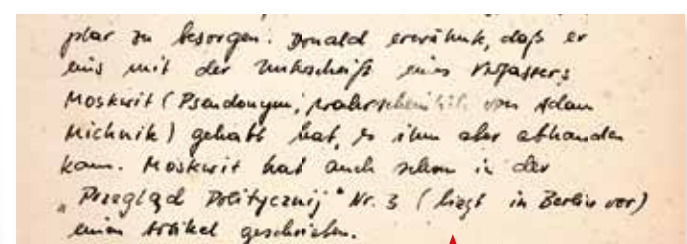 plar zu besorgen. Donald erwähnt, daß er
eins mit der Unterschrift eines Verfassers
Moskwit (Pseudonym, wahrscheinlich von Adam
Michnik) gehabt hat, es ihm aber abhanden
kam. Moskwit hat auch schon in der
„Przegląd Politycznij" Nr. 3 (liegt in Berlin vor)
einen Artikel geschrieben.